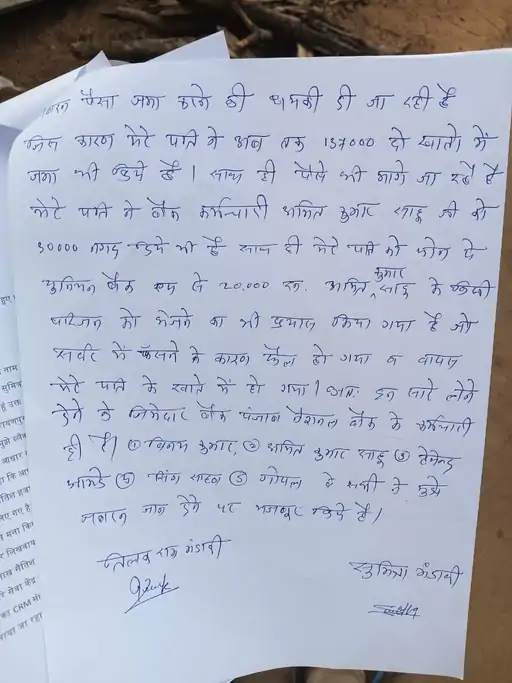 जबरन पैसा जमा करने की धमकी दी जा रही है
जिस कारण मेरे पति ने अब तक 157000 दो खातो में
जमा भी किये है। साथ ही पैसे भी मांगे जा रहे है
मेरे पति ने बैंक कर्मचारी अमित कुमार साहू जी को
30000 नगद दिये भी है साथ ही मेरे पति को फोन पे
युनियन बैंक से 20,000 रू. अमित कुमार साहू के किसी
परिजन को भेजने का भी प्रयास किया गया है जो
सर्वर में फॅसने के कारण फैल हो गया व वापस
मेरे पति के खाते में हो गया। अतः इन सारे लोगो
देने के जिमेदार बैंक पंजाब नैशनल बैंक के कर्मचारी
ही है। ① विनय कुमार, ② अमित कुमार साहू ③ हेमेन्द्र
④ सिंग साहब ⑤ गोपाल ये सभी ने मुझे
जबरन जान देने पर मजबूर किये है।
तिलक राम मंडावी
सुमित्रा मंडावी